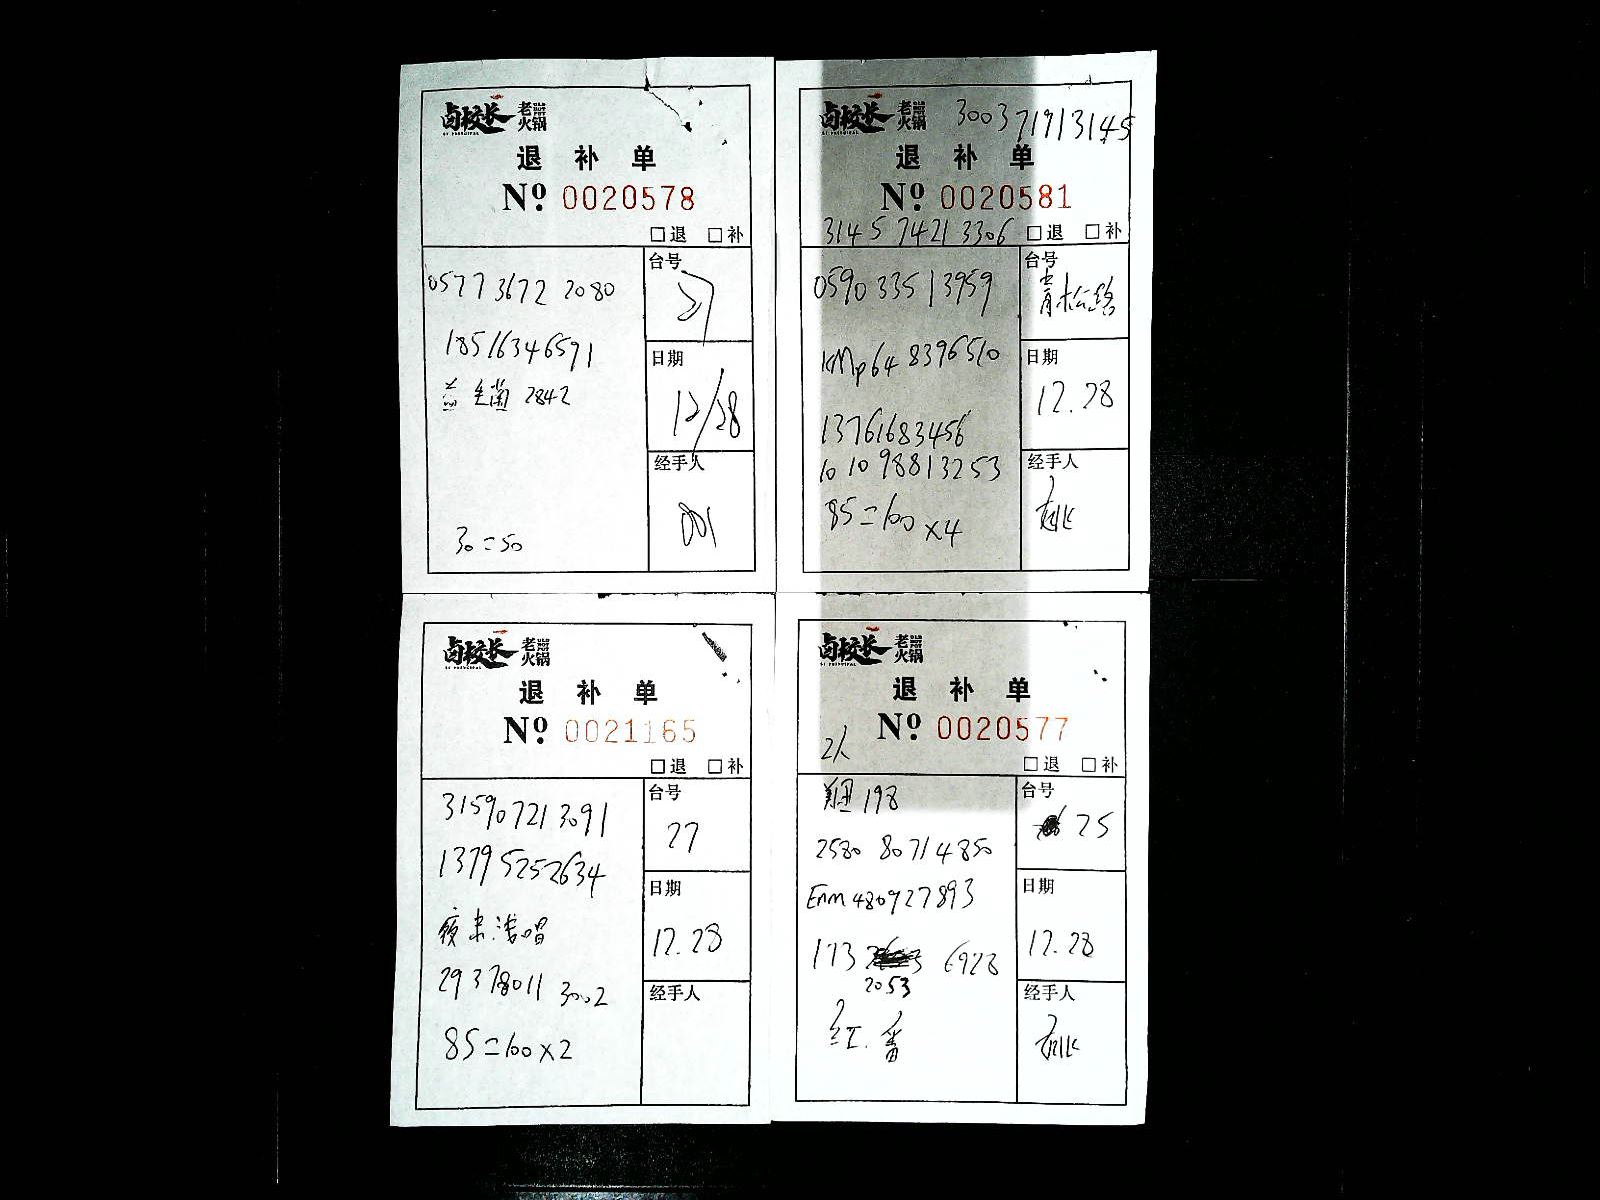 卤校长 老火锅
退 补 单
Nº 0020578
□退 □补
0577 3672 2080
18516346591
益生菌 2842
30=50
台号
27
日期
12/28
经手人
001
卤校长 老火锅
3003 71913145
退 补 单
Nº 0020581
3145 7421 3306 □退 □补
0590 33513959
KMp64 8396510
13761683456
10 10 98813253
85=100 ×4
台号
青松路
日期
12.28
经手人
卤校长 老火锅
退 补 单
Nº 0021165
□退 □补
31590721 3091
13795252634
夜来浅唱
29378011 3002
85=100×2
台号
27
日期
12.28
经手人
卤校长 老火锅
退 补 单
Nº 0020577
2人
□退 □补
198
2580 80714850
Enm480927893
173 6928
2053
红.番
台号
25
日期
12.28
经手人